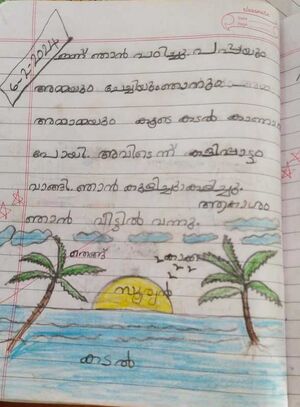 6-2-2024
ഇന്ന് ഞാൻ പഠിച്ചു. പപ്പയും
അമ്മയും ചേച്ചിയും ഞാനും
അമ്മാമ്മയും കൂടെ കടൽ കാണാൻ
പോയി. അവിടെ നിന്ന് കളിപ്പാട്ടം
വാങ്ങി. ഞാൻ കുളിച്ചു കളിച്ചു.
ഞാൻ വീട്ടിൽ വന്നു. ആകാശം
തെങ്ങ്
കാക്ക
സൂര്യൻ
കടൽ